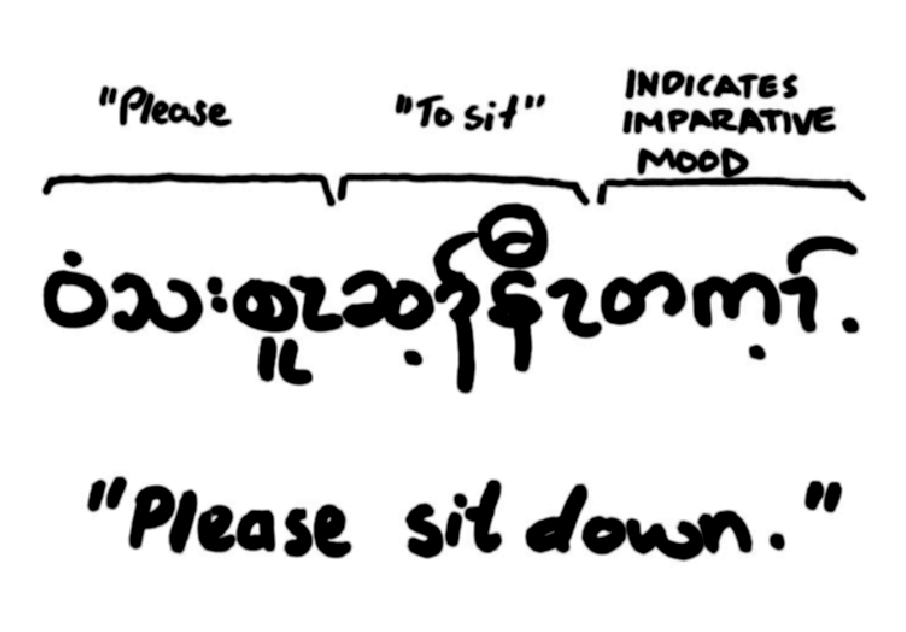 "Please
"To sit"
INDICATES
IMPARATIVE
MOOD
ဝံသးစူၤဆ့ၣ်နီၤတက့ၢ်.
"Please sit down."